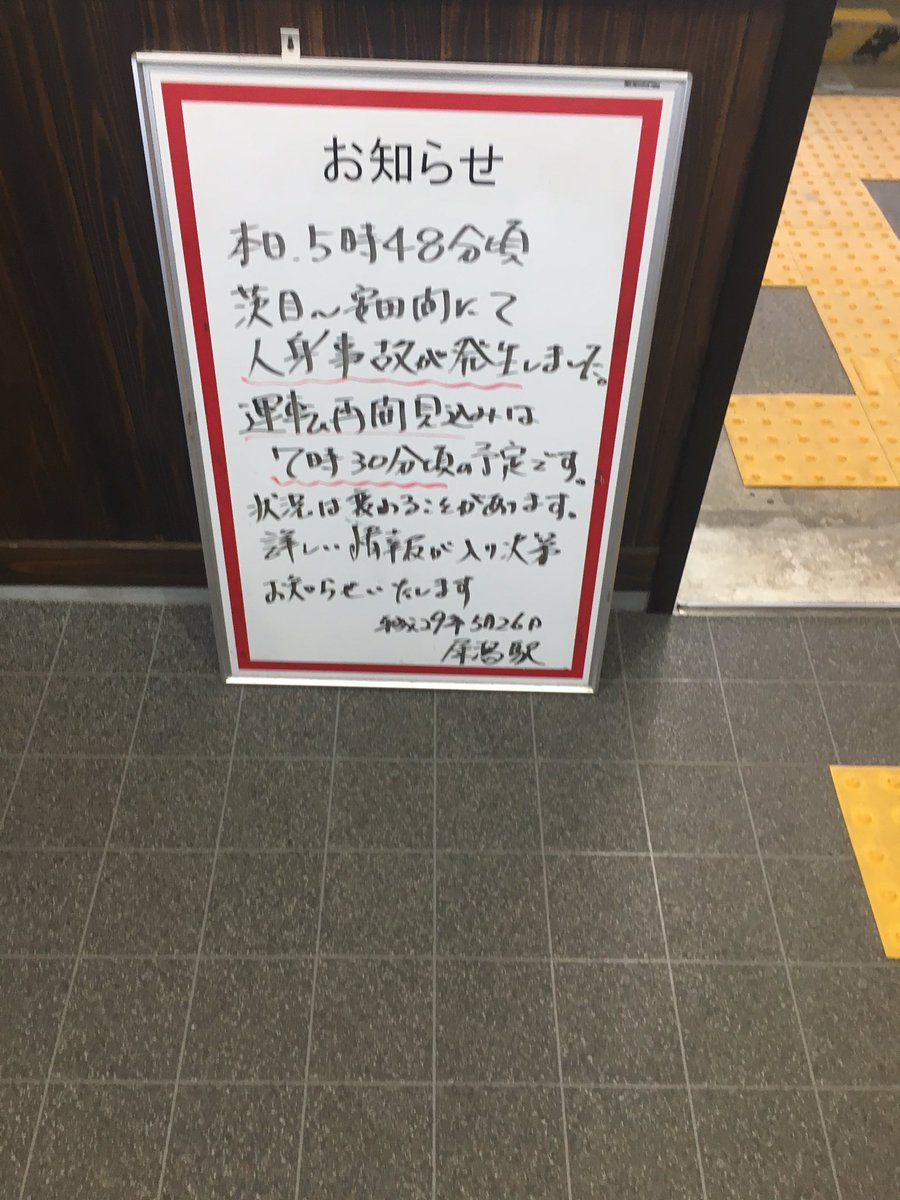 お知らせ
本日.5時48分頃
茨目〜安田間にて
人身事故が発生しました。
運転再開見込みは
7時30分頃の予定です。
状況は変わることがあります。
詳しい情報が入り次第
お知らせいたします
平成29年5月26日
犀潟駅